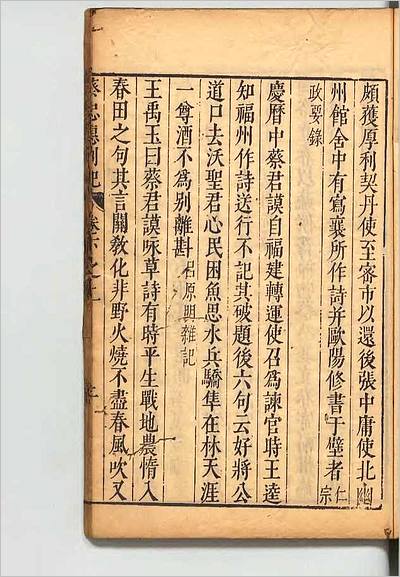 頗獲厚利契丹使至密市以還後張中庸使北幽
州館舍中有寫襄所作詩并歐陽修書于壁者仁宗
政要錄
慶曆中蔡君謨自福建轉運使召爲諫官時王逵
知福州作詩送行不記其破題後六句云好將公
道口去沃聖君心民困魚思水兵驕隼在林天涯
一尊酒不爲別離斟呂原與雜記
王禹玉曰蔡君謨咏草詩有時平生戰地農惰入
春田之句其言關教化非野火燒不盡春風吹又
蔡忠惠別紀 卷六之